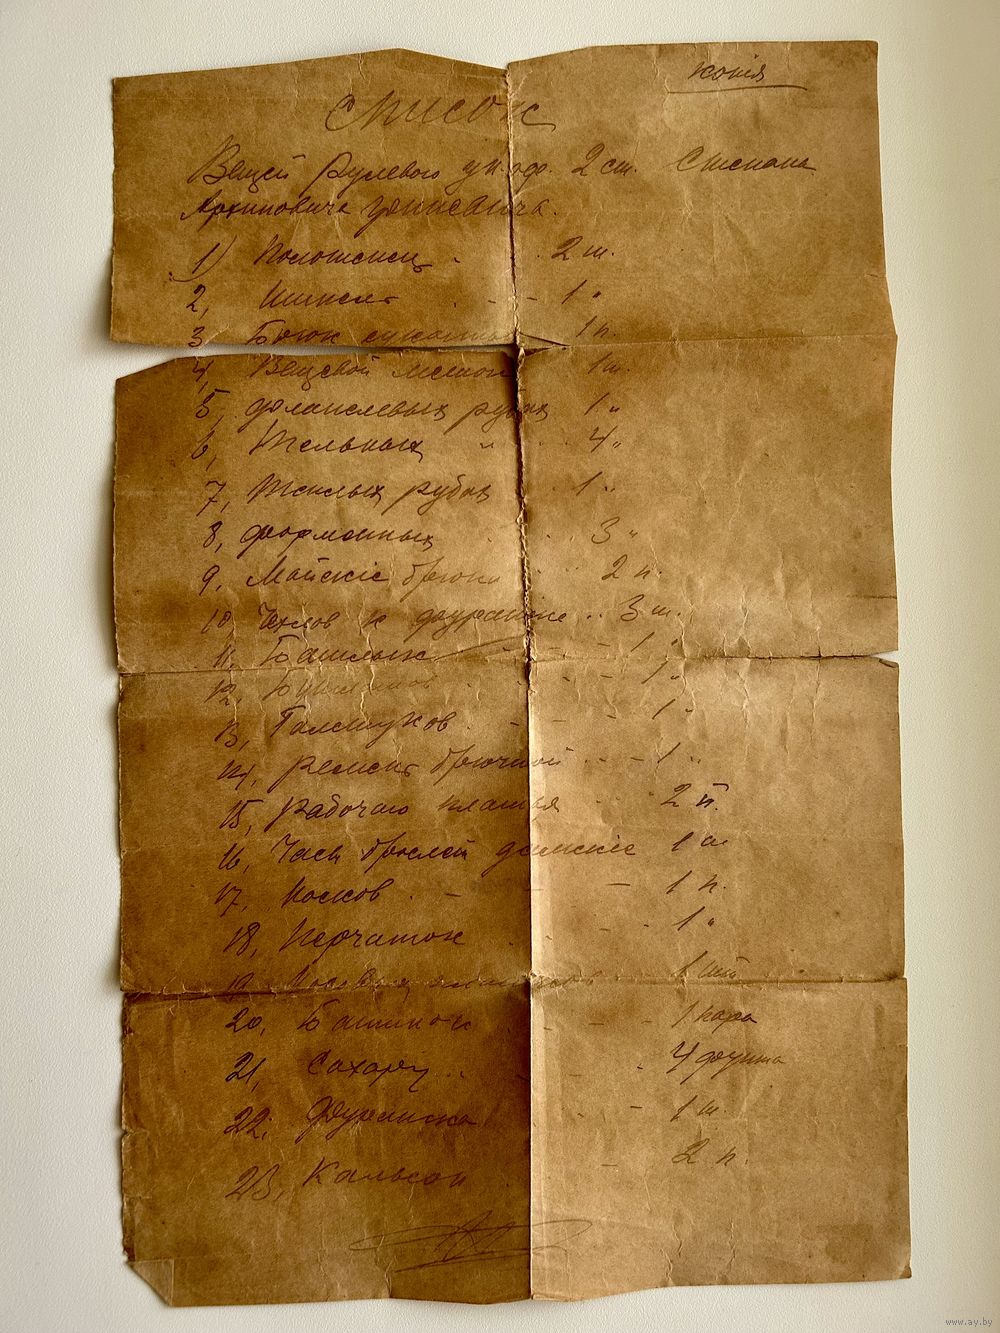 копія
Список
Вещей Рулевого ун. оф. 2 ст. Степана
Архиповича
1) Полотенец . . 2 ш.
2, Шинель . - - 1 "
3 Брюк суконных 1 п.
4, Вещевой мешок 1 ш.
5, фланелевых рубах 1 "
6, Тельных " . . . 4 "
7, Теплых рубах . . 1 "
8, форменных . . . 3 "
9, Майскіе брюки . . 2 п.
10 Чехлов к фуражке . . 3 ш.
11, Башлык - - 1 "
12, . - - 1 "
13, Галстухов . - - - 1 "
14, Ремень брючной . . - 1 "
15, Рабочаго платья . . 2 п.
16, Часы браслет дамские 1 ш.
17, Носков . - - 1 п.
18, Перчаток . - . 1 "
19, Носовых платков . . 1 шт
20, Ботинок . - - 1 пара
21, Сахару . . - . 4 фунта
22, Фуражка . - 1 ш.
23, Кальсон . - 2 п.
www.ay.by